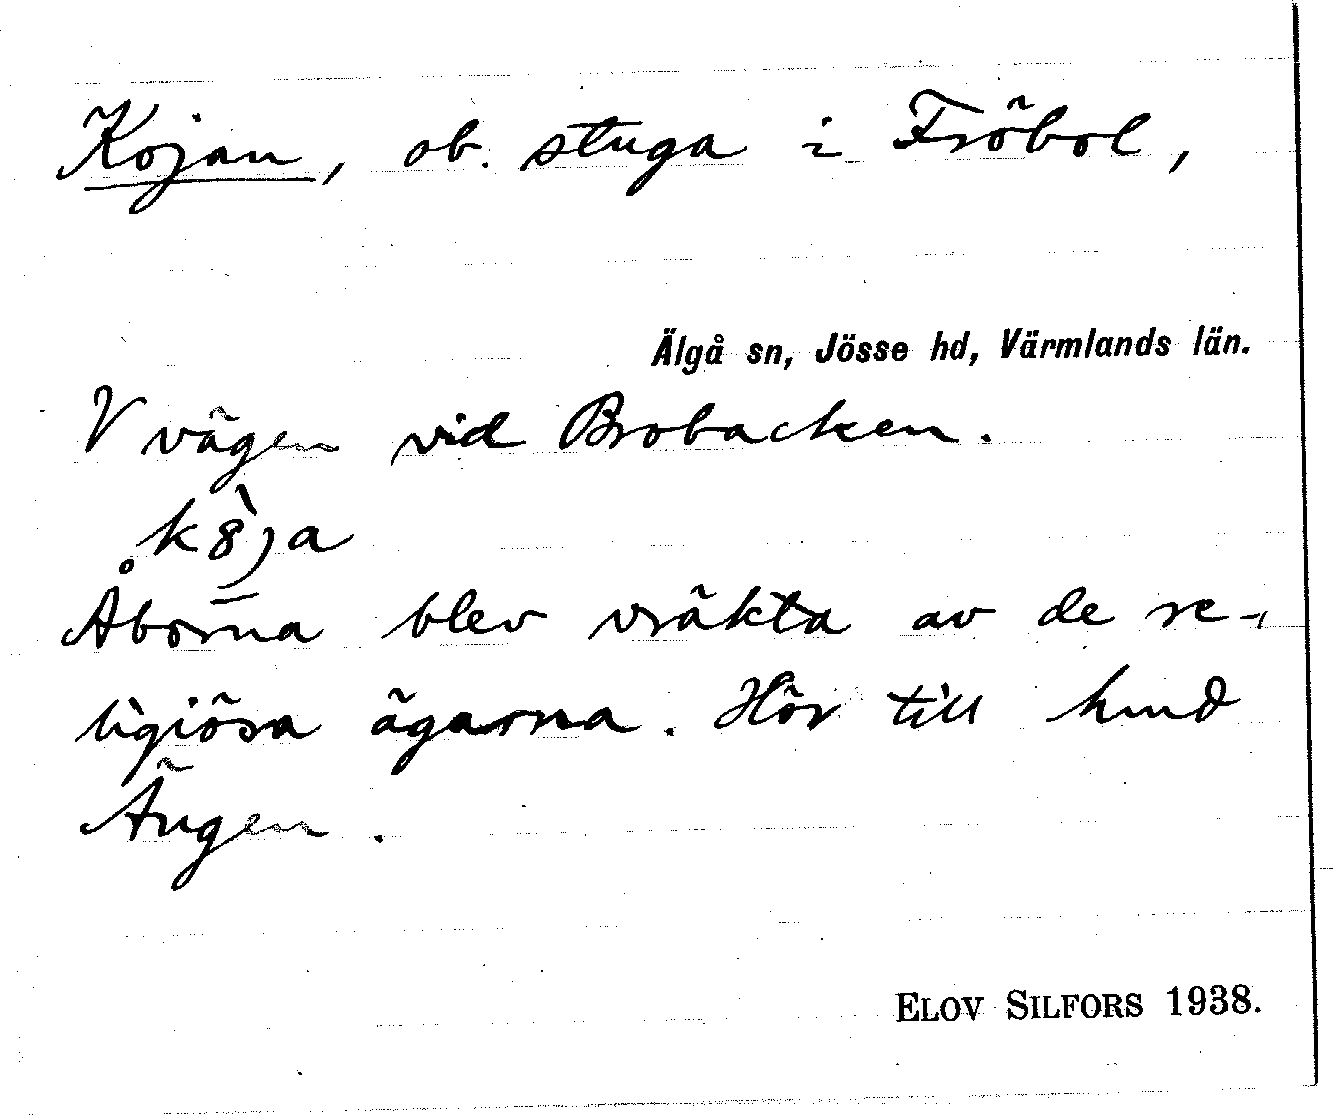 Kojan, ob. stuga i Fröbol,
Älgå sn, Jösse hd, Värmlands län.
V vägen vid Brobacken.
k8̀ja
Åborna blev vräkta av de re-
ligiösa ägarna. Hör till hmd
Ängen.
ELOV SILFORS 1938.